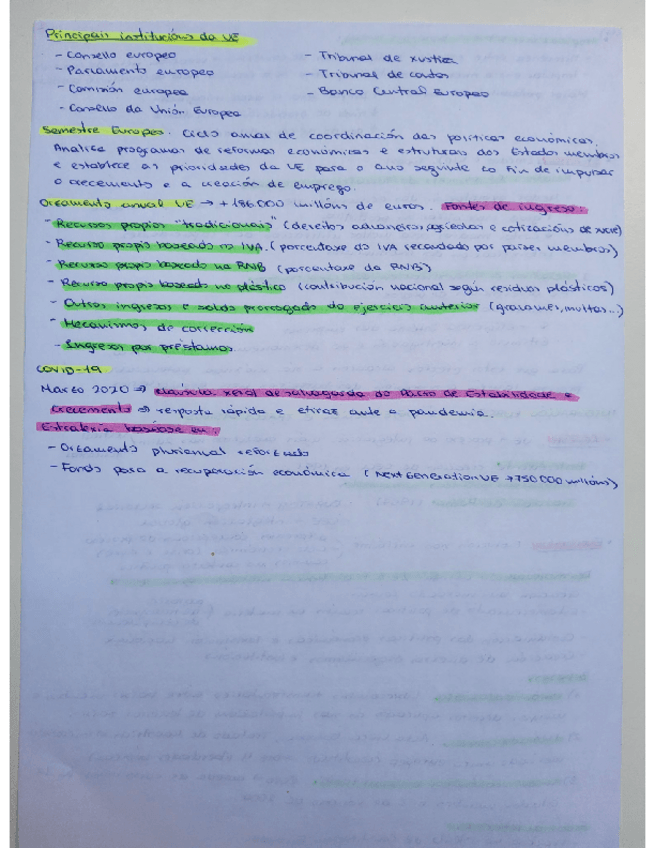 Principais institucións da UE
- Consello europeo
- Parlamento europeo
- Comisión europea
- Consello da Unión Europea
- Tribunal de xustiza
- Tribunal de contas
- Banco Central Europeo
Semestre Europeo. Ciclo anual de coordinación das políticas económicas.
Analiza programas de reformas económicas e estruturais dos Estados membros
e establece as prioridades da UE para o ano seguinte co fin de impulsar
o crecemento e a creación de emprego.
Orzamento anual UE → +186.000 millóns de euros. Fontes de ingreso:
- Recursos propios "tradicionais" (dereitos aduaneiros, agrícolas e cotizacións de azucre)
- Recurso propio baseado no IVA. (porcentaxe do IVA recadado por países membros)
- Recurso propio baseado na RNB (porcentaxe da RNB)
- Recurso propio baseado no plástico (contribución nacional según residuos plásticos)
- Outros ingresos e saldo prorrogado do exercicio anterior (gravames, multas...)
- Mecanismos de corrección
- Ingresos por préstamos.
COVID-19
Marzo 2020 → cláusula xeral de salvagarda do Pacto de Estabilidade e
Crecemento → resposta rápida e eficaz ante a pandemia.
Estratexia baséase en:
- Orzamento plurianual reforzado
- Fondo para a recuperación económica (Next Generation UE → 750.000 millóns)